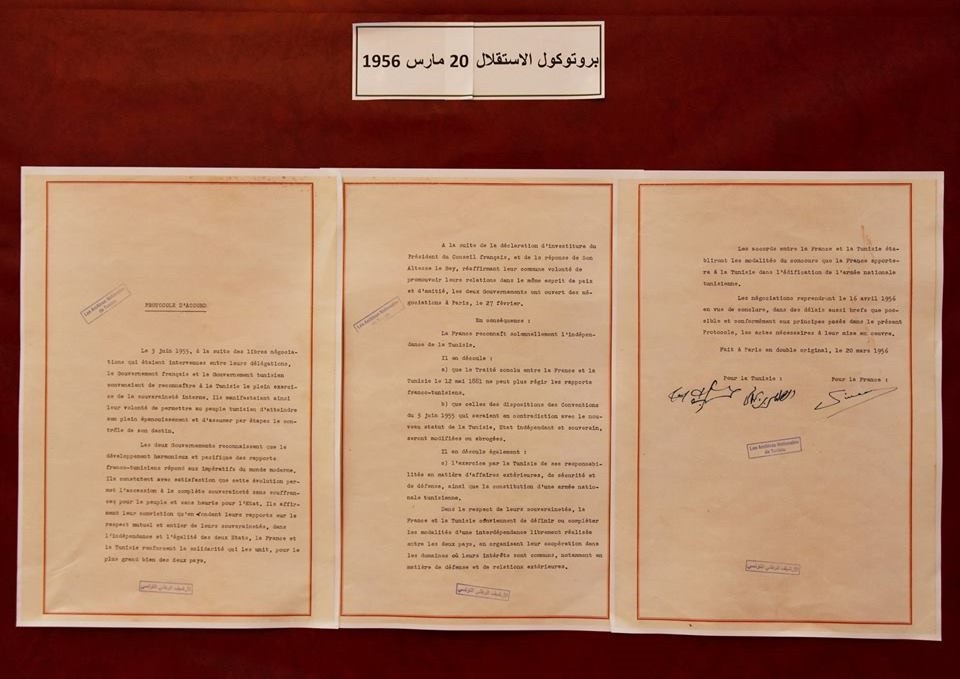 بروتوكول الاستقلال 20 مارس 1956
Les Archives Nationales
de Tunisie
PROTOCOLE D'ACCORD
Le 3 juin 1955, à la suite des libres négocia-
tions qui étaient intervenues entre leurs délégations,
le Gouvernement français et le Gouvernement tunisien
convenaient de reconnaître à la Tunisie le plein exerci-
ce de la souveraineté interne. Ils manifestaient ainsi
leur volonté de permettre au peuple tunisien d'atteindre
son plein épanouissement et d'assumer par étapes le con-
trôle de son destin.
Les deux Gouvernements reconnaissent que le
développement harmonieux et pacifique des rapports
franco-tunisiens répond aux impératifs du monde moderne.
Ils constatent avec satisfaction que cette évolution per-
met l'accession à la complète souveraineté sans souffran-
ces pour le peuple et sans heurts pour l'Etat. Ils affir-
ment leur conviction qu'en fondant leurs rapports sur le
respect mutuel et entier de leurs souverainetés, dans
l'indépendance et l'égalité des deux Etats, la France et
la Tunisie renforcent la solidarité qui les unit, pour le
plus grand bien des deux pays.
الأرشيف الوطني التونسي
A la suite de la déclaration d'investiture du
Président du Conseil français, et de la réponse de Son
Altesse le Bey, réaffirmant leur commune volonté de
promouvoir leurs relations dans le même esprit de paix
et d'amitié, les deux Gouvernements ont ouvert des né-
gociations à Paris, le 27 février.
Les Archives Nationales
En conséquence :
La France reconnaît solennellement l'indépen-
dance de la Tunisie.
Il en découle :
a) que le Traité conclu entre la France et la
Tunisie le 12 mai 1881 ne peut plus régir les rapports
franco-tunisiens.
b) que celles des dispositions des Conventions
du 3 juin 1955 qui seraient en contradiction avec le nou-
veau statut de la Tunisie, Etat indépendant et souverain,
seront modifiées ou abrogées.
Il en découle également :
c) l'exercice par la Tunisie de ses responsabi-
lités en matière d'affaires extérieures, de sécurité et
de défense, ainsi que la constitution d'une armée natio-
nale tunisienne.
Dans le respect de leurs souverainetés, la
France et la Tunisie conviennent de définir ou compléter
les modalités d'une interdépendance librement réalisée
entre les deux pays, en organisant leur coopération dans
les domaines où leurs intérêts sont communs, notamment en
matière de défense et de relations extérieures.
الأرشيف الوطني التونسي
Les accords entre la France et la Tunisie éta-
bliront les modalités du concours que la France apporte-
ra à la Tunisie dans l'édification de l'armée nationale
tunisienne.
Les négociations reprendront le 16 avril 1956
en vue de conclure, dans des délais aussi brefs que pos-
sible et conformément aux principes posés dans le présent
Protocole, les actes nécessaires à leur mise en oeuvre.
Fait à Paris en double original, le 20 mars 1956
Pour la Tunisie : Pour la France :
Les Archives Nationales
de Tunisie
الأرشيف الوطني التونسي